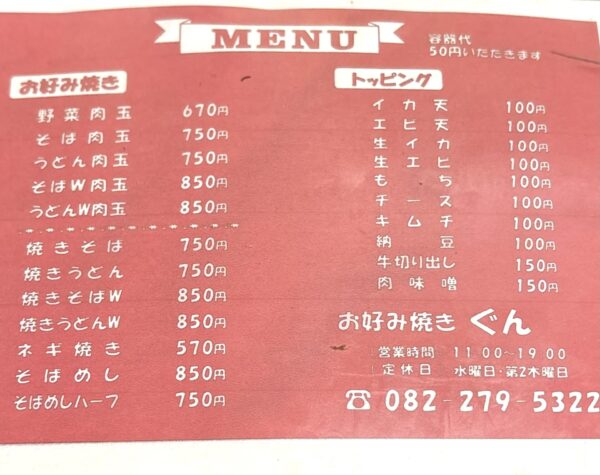 MENU
容器代
50円いただきます
お好み焼き
野菜肉玉 670円
そば肉玉 750円
うどん肉玉 750円
そばW肉玉 850円
うどんW肉玉 850円
焼きそば 750円
焼きうどん 750円
焼きそばW 850円
焼きうどんW 850円
ネギ焼き 570円
そばめし 850円
そばめしハーフ 750円
トッピング
イカ天 100円
エビ天 100円
生イカ 100円
生エビ 100円
もち 100円
チーズ 100円
キムチ 100円
納豆 100円
牛切り出し 150円
肉味噌 150円
お好み焼き ぐん
営業時間 11:00～19:00
定休日 水曜日・第2木曜日
☎ 082-279-5322